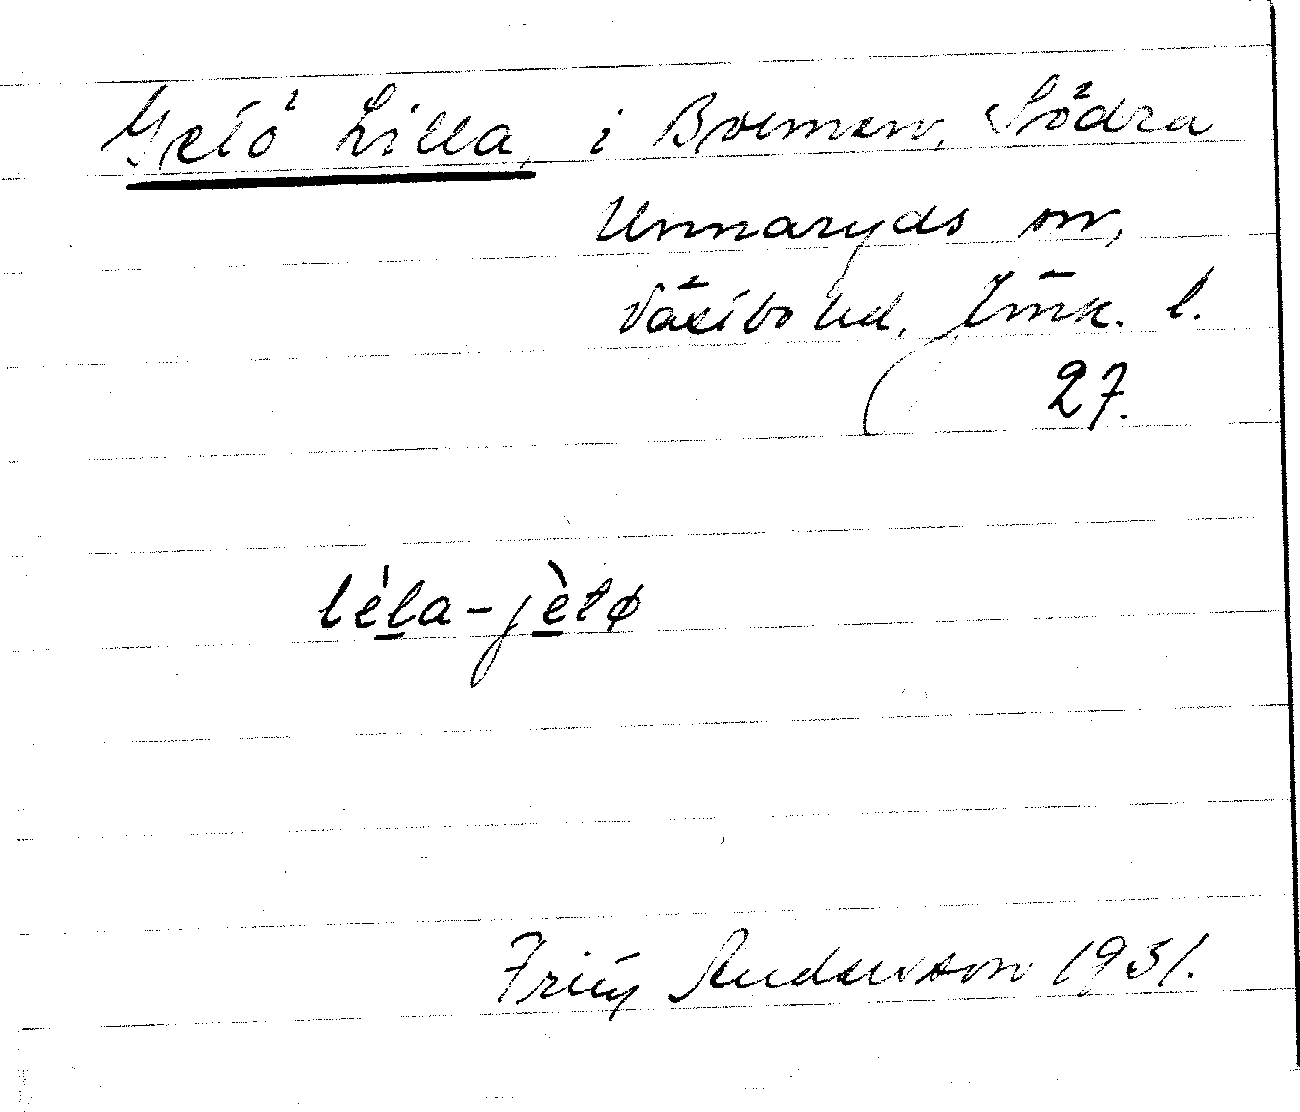 Getö Lilla, i Bolmen, Södra
Unnaryds sn,
Västbo hd, Jönk. l.
27.
lèla-jètø
Fritz Andersson 1931.